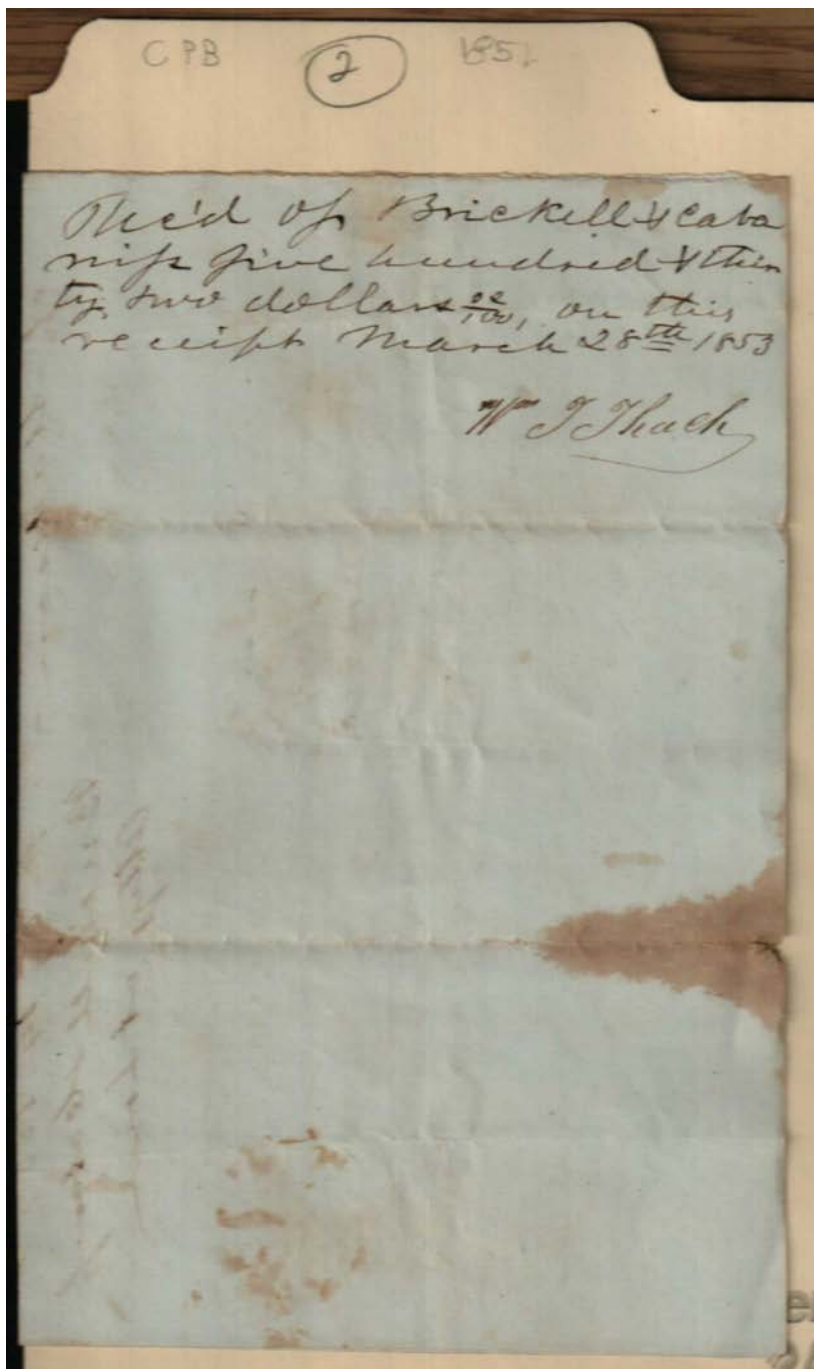 CPB 2 1851
Rec'd of Brickell & Caba
niss five hundred & thir
ty two dollars 02/100, on this
receipt March 28th 1853
Wm T Thach